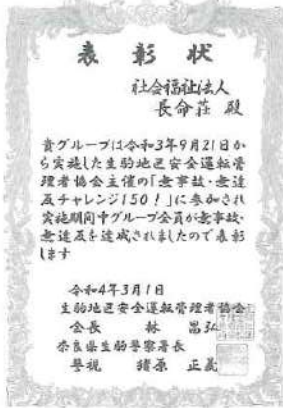 表彰状
社会福祉法人
長命荘 殿
貴グループは令和3年9月21日か
ら実施した生駒地区安全運転管
理者協会主催の「無事故・無違
反チャレンジ150!」に参加され
実施期間中グループ全員が無事故・
無違反を達成されましたので表彰
します
令和4年3月1日
生駒地区安全運転管理者協会
会長 林 昌弘
奈良県生駒警察署長
警視 猪原 正義